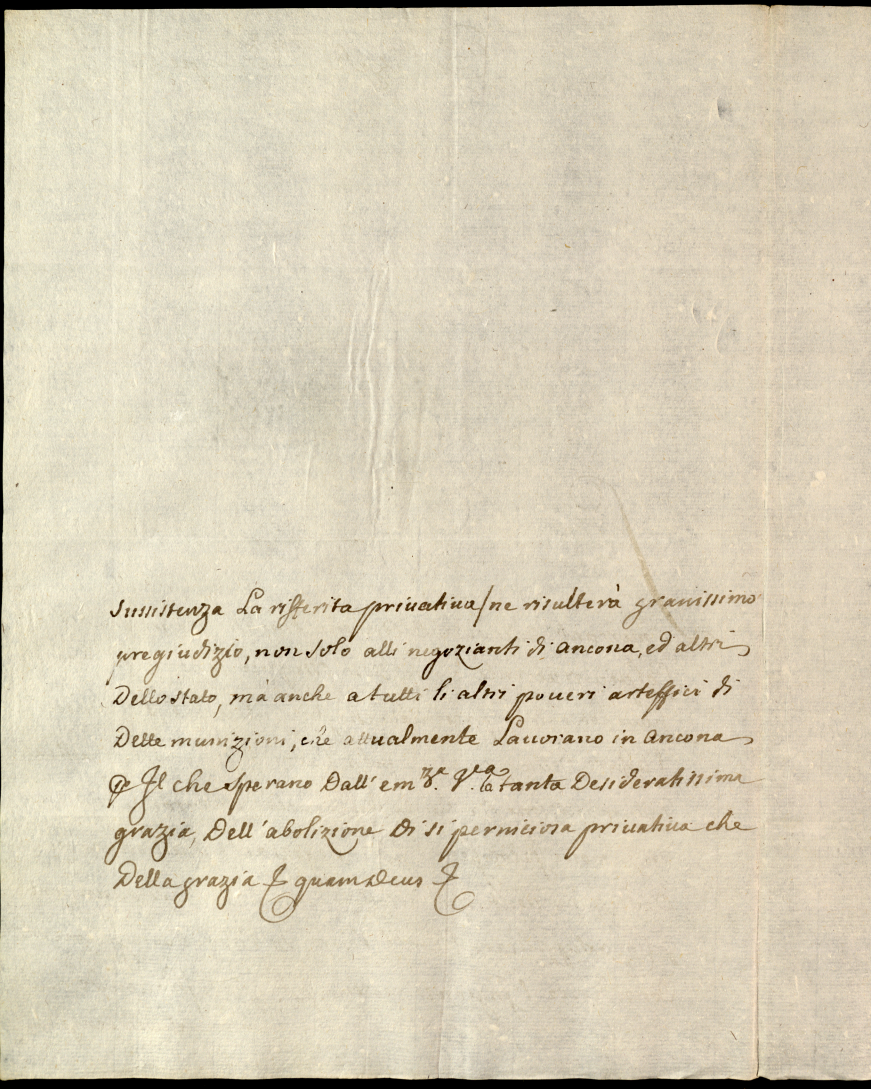 sussistenza La rifferita privativa / ne risulterà gravissimo
pregiudizio, non solo alli negozianti di Ancona, ed altri
Dello stato, mà anche a tutti li altri poveri arteffici di
Dette munizioni, che attualmente Lavorano in Ancona
Il che sperano Dall' em.za V.ra tanta Desideratissima
grazia, Dell' abolizione di si perniciosa privativa che
Della grazia quam Deus